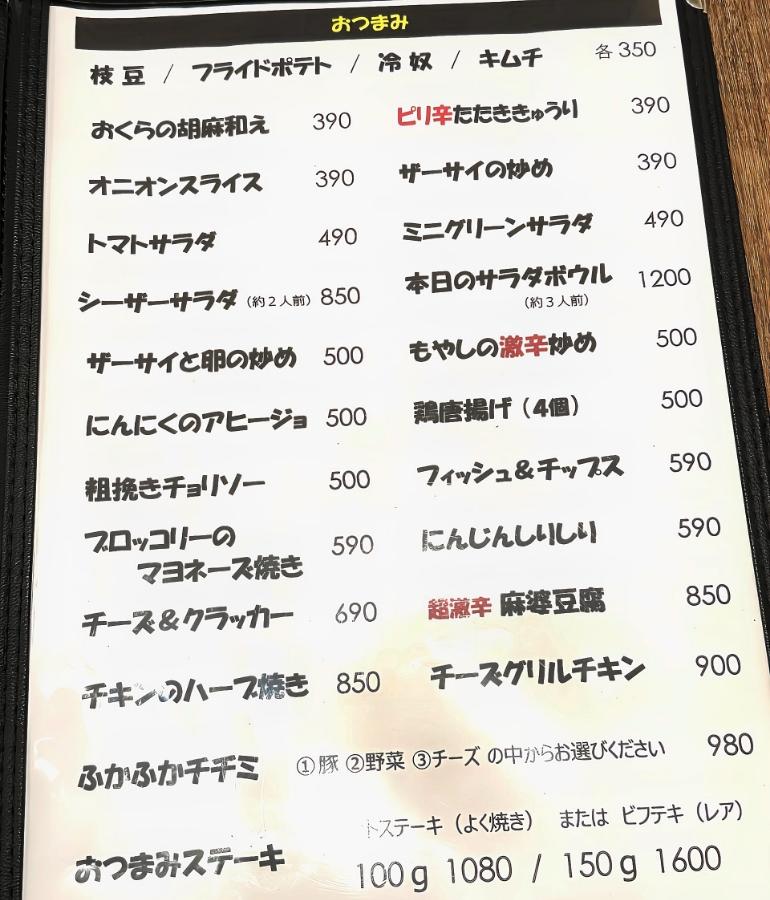 おつまみ
枝豆 / フライドポテト / 冷奴 / キムチ 各350
おくらの胡麻和え 390 ピリ辛たたききゅうり 390
オニオンスライス 390 ザーサイの炒め 390
トマトサラダ 490 ミニグリーンサラダ 490
シーザーサラダ（約２人前） 850 本日のサラダボウル 1200
（約３人前）
ザーサイと卵の炒め 500 もやしの激辛炒め 500
にんにくのアヒージョ 500 鶏唐揚げ（4個） 500
粗挽きチョリソー 500 フィッシュ＆チップス 590
ブロッコリーの
マヨネーズ焼き 590 にんじんしりしり 590
チーズ＆クラッカー 690 超激辛 麻婆豆腐 850
チキンのハーブ焼き 850 チーズグリルチキン 900
ふかふかチヂミ ①豚 ②野菜 ③チーズ の中からお選びください 980
トステーキ（よく焼き） または ビフテキ（レア）
おつまみステーキ 100g 1080 / 150g 1600